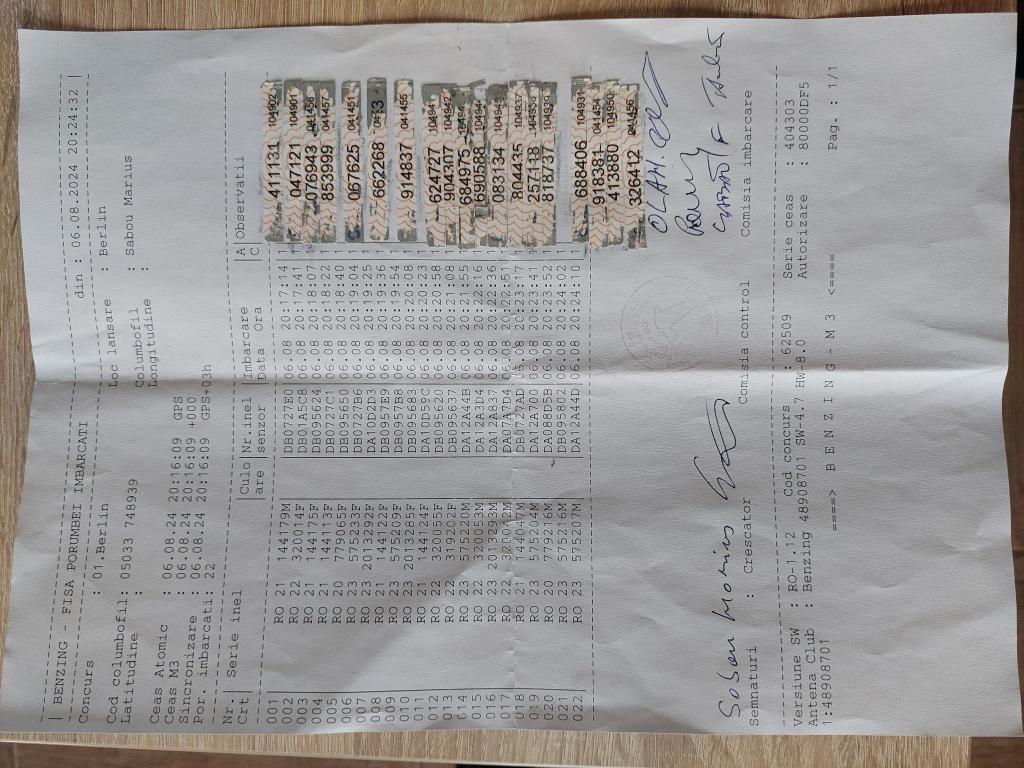 | BENZING - FISA PORUMBEI IMBARCATI din : 06.08.2024 20:24:32 |
Concurs : 01.Berlin Loc lansare : Berlin
Cod columbofil: 05033 748939 Columbofil : Sabou Marius
Latitudine : Longitudine :
Ceas Atomic : 06.08.24 20:16:09 GPS
Ceas M3 : 06.08.24 20:16:09 +000
Sincronizare : 06.08.24 20:16:09 GPS+03h
Por. imbarcati: 22
Nr.| Serie inel |Culo|Nr.inel |Imbarcare |A|Observatii
Crt| |are |senzor |Data Ora |C|
001 RO 21 144179M DB0727E0 06.08 20:17:14 1 411131 104902
002 RO 22 320014F DB01A5C8 06.08 20:17:41 1 047121 104901
003 RO 21 144175F DB095624 06.08 20:18:07 1 076943 041458
004 RO 21 144113F DB0727C1 06.08 20:18:22 1 853999 041457
005 RO 20 779065F DB095650 06.08 20:18:40 1
006 RO 23 575233F DB0727B6 06.08 20:19:04 1 067625 041451
007 RO 23 2013292F DA10D2D3 06.08 20:19:25 1 862268
008 RO 21 144122F DB0957E9 06.08 20:19:36 1
009 RO 23 575209F DB0957B8 06.08 20:19:54 1 914837 041455
010 RO 23 2013285F DB095683 06.08 20:20:08 1
011 RO 21 144124F DA10D58C 06.08 20:20:23 1 624727 104941
012 RO 22 320055F DB095620 06.08 20:20:58 1 904307 104942
013 RO 22 319202F DB095637 06.08 20:21:08 1 684975
014 RO 23 575220M DA12A44B 06.08 20:21:55 1 090588
015 RO 22 320053M DA12A3D4 06.08 20:22:16 1 083134
016 RO 23 2013203M DA12A837 06.08 20:22:36 1 804435 104937
017 RO 22 320002M DA07A7D4 06.08 20:22:51 1 257118
018 RO 21 144047M DB0727AD 06.08 20:23:17 1 818737 104939
019 RO 23 575204M DA12A700 06.08 20:23:41 1
020 RO 20 779216M DA088DEB 06.08 20:23:52 1 688406
021 RO 23 575216M DB095802 06.08 20:24:01 1 918381 041454
022 RO 23 575207M DA12A44D 06.08 20:24:10 1 413380 104950
326412 041456
Semnaturi : Crescator Comisia control Comisia imbarcare
Versiune SW : RO-1.12 Cod concurs : 62509 Serie ceas : 404303
Antena Club : Benzing 48908701 SW-4.7 HW-8.0 Autorizare : 80000DF5
1:48908701
====> B E N Z I N G - M 3 <==== Pag. : 1/1